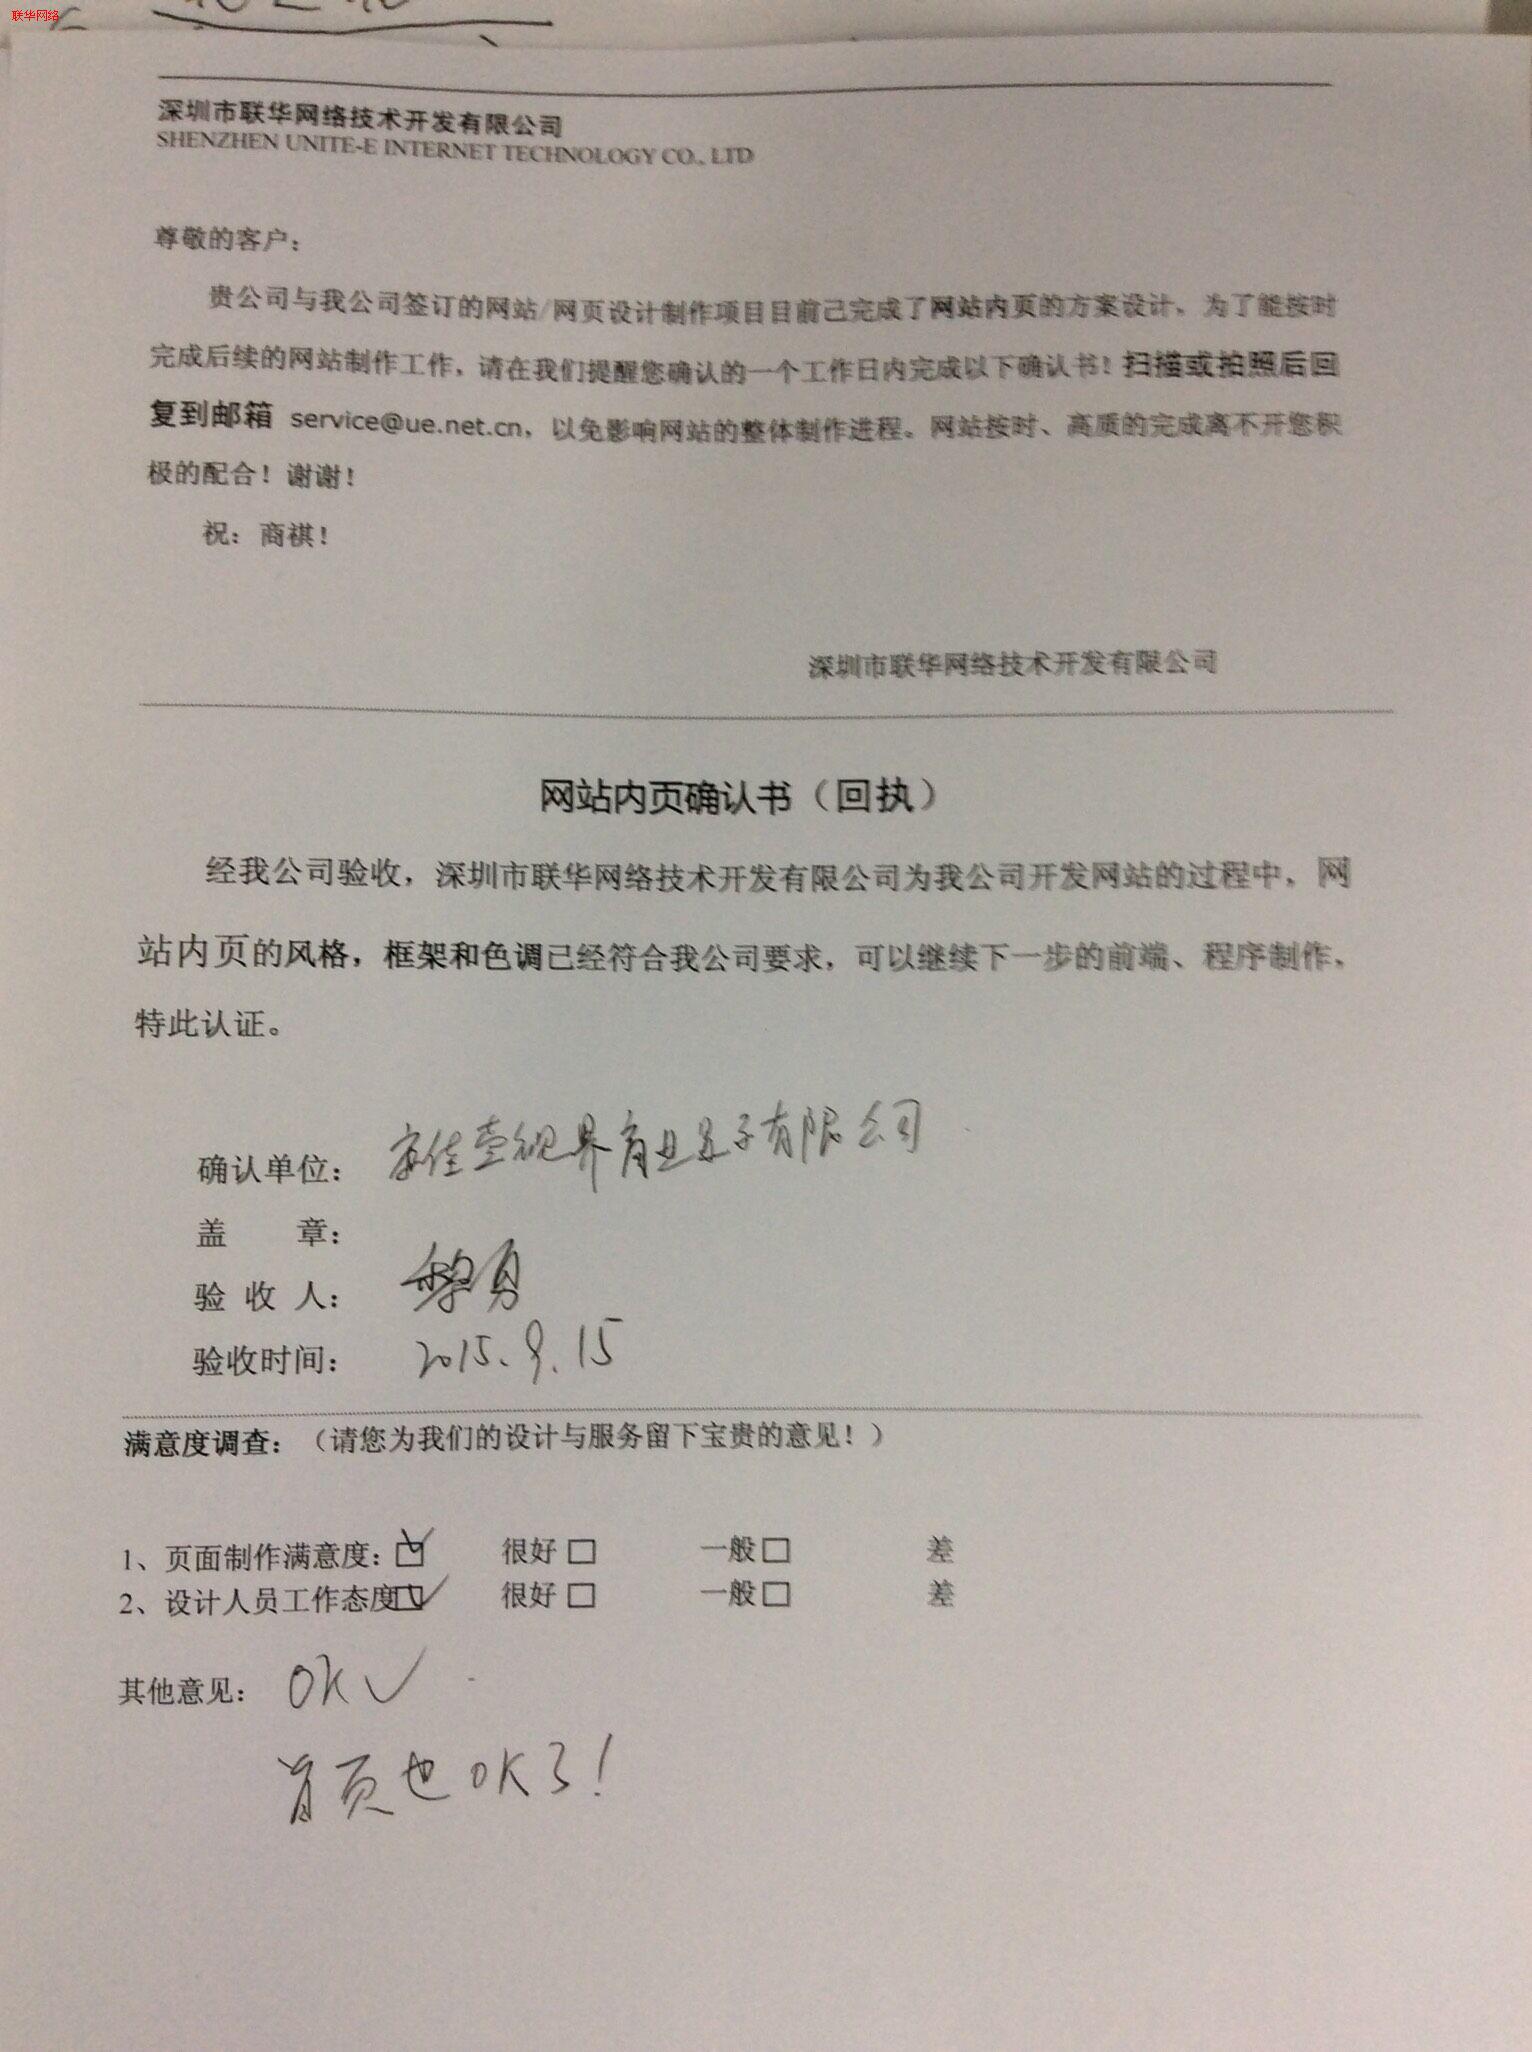 联华网络
深圳市联华网络技术开发有限公司
SHENZHEN UNITE-E INTERNET TECHNOLOGY CO., LTD
尊敬的客户：
贵公司与我公司签订的网站/网页设计制作项目目前已完成了网站内页的方案设计，为了能按时
完成后续的网站制作工作，请在我们提醒您确认的一个工作日内完成以下确认书！扫描或拍照后回
复到邮箱 service@ue.net.cn，以免影响网站的整体制作进程。网站按时、高质的完成离不开您积
极的配合！谢谢！
祝：商祺！
深圳市联华网络技术开发有限公司
网站内页确认书（回执）
经我公司验收，深圳市联华网络技术开发有限公司为我公司开发网站的过程中，网
站内页的风格，框架和色调已经符合我公司要求，可以继续下一步的前端、程序制作，
特此认证。
确认单位： 佳壹视界 有限公司
盖 章：
验 收 人： 黎勇
验收时间： 2015.9.15
满意度调查：（请您为我们的设计与服务留下宝贵的意见！）
1、页面制作满意度：☑ 很好 □ 一般 □ 差
2、设计人员工作态度☑ 很好 □ 一般 □ 差
其他意见： OK✓
首页也OK了！